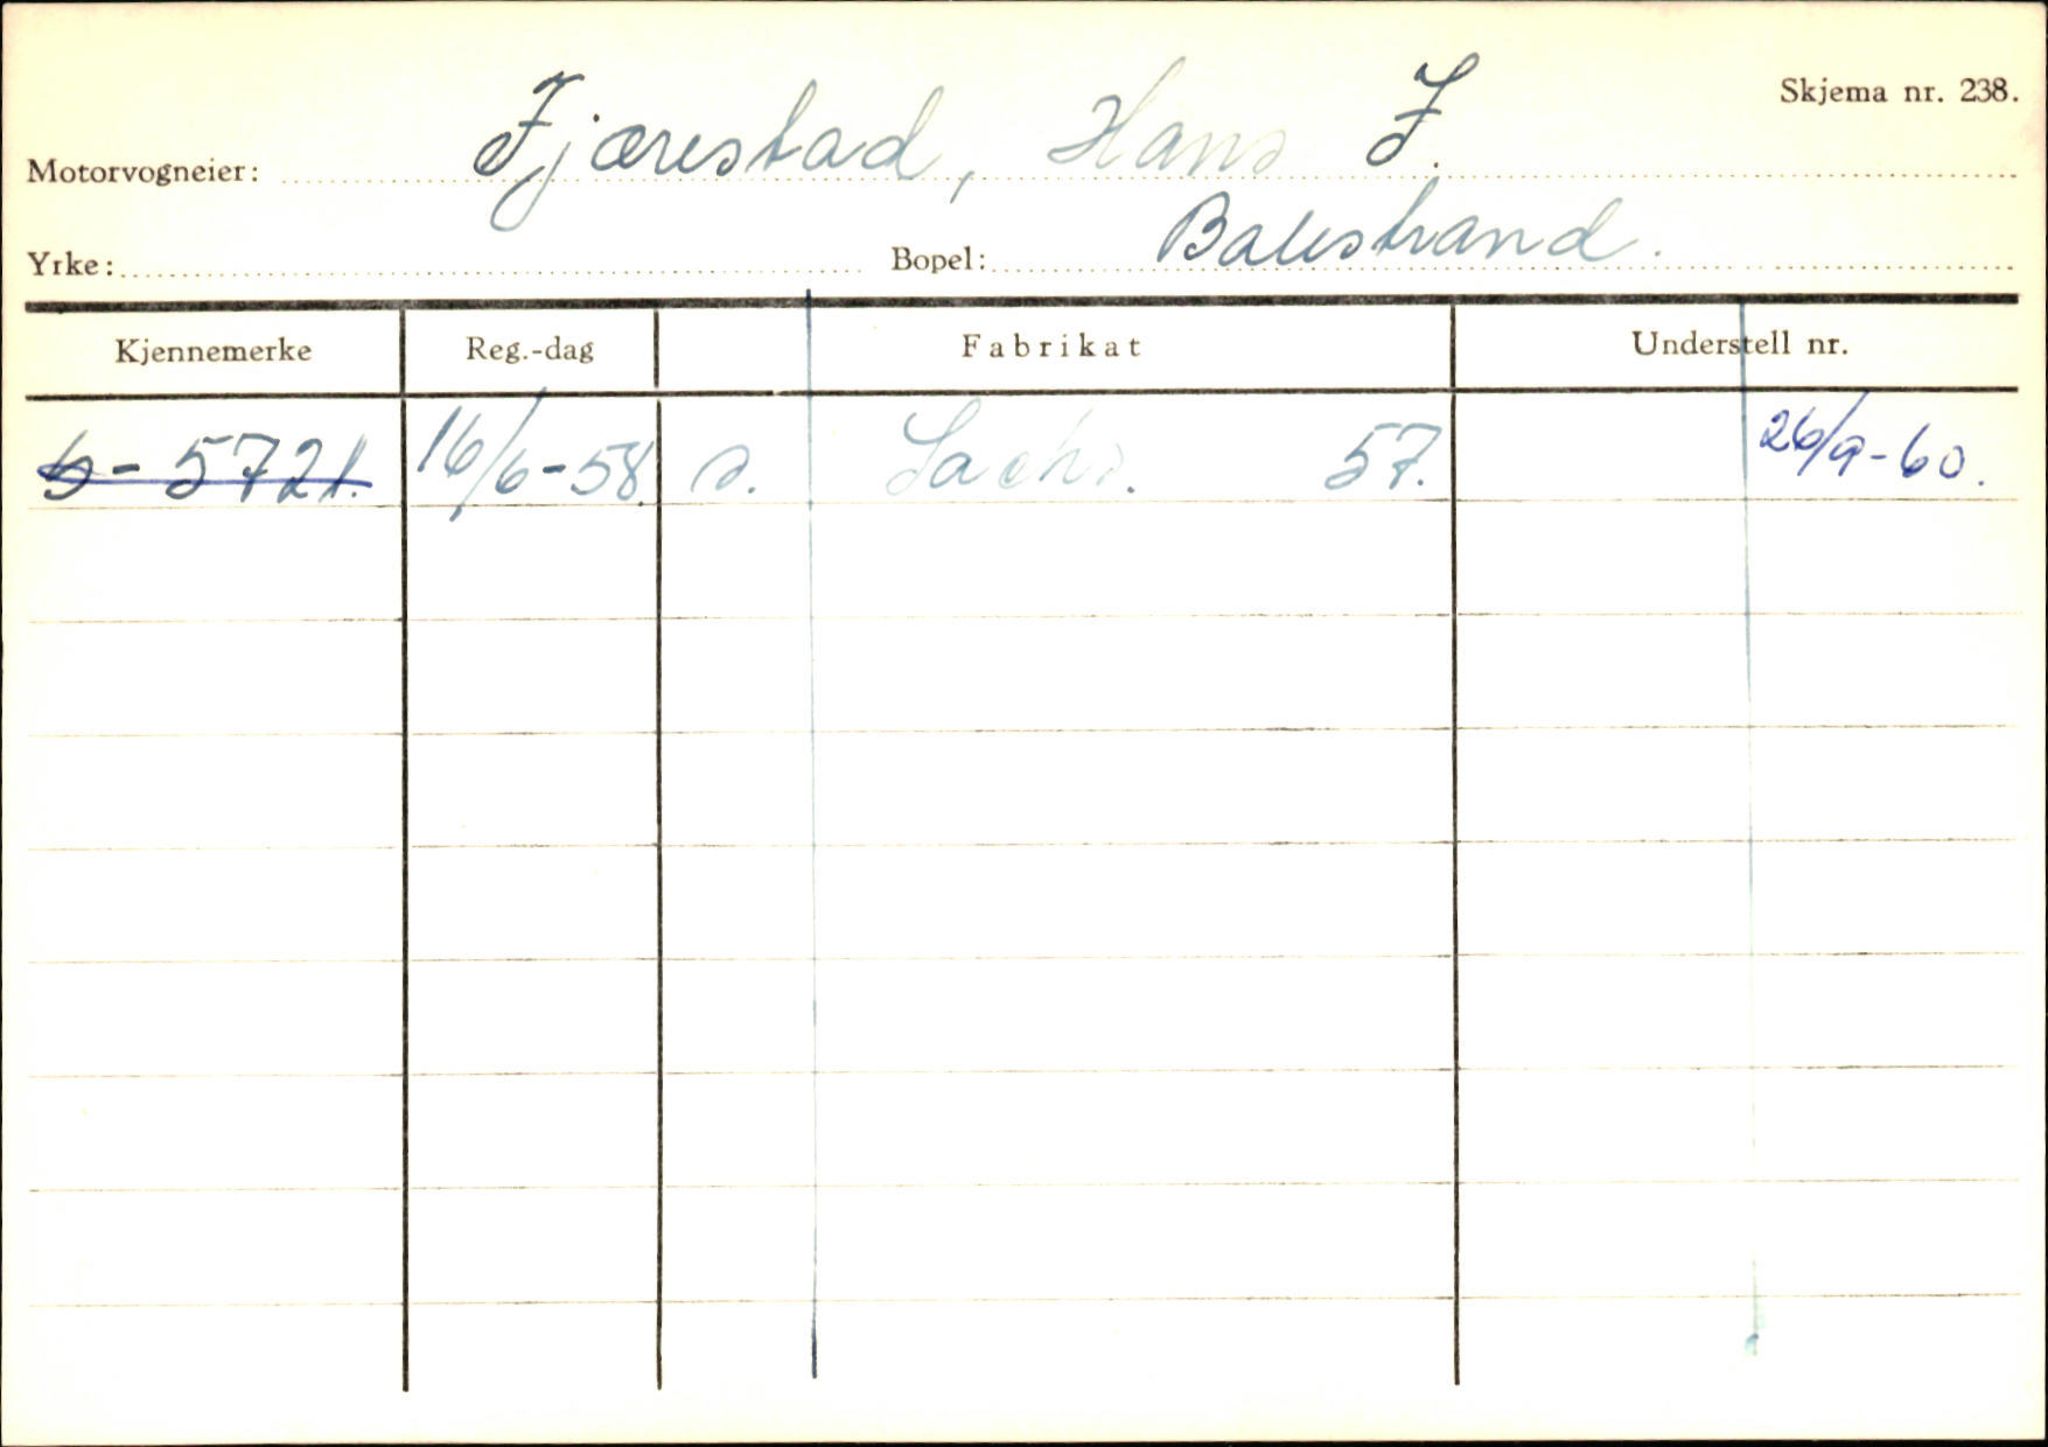 Skjema nr. 238.
Motorvogneier: Fjærestad, Hans J.
Yrke: Bopel: Balestrand.
Kjennemerke Reg.-dag Fabrikat Understell nr.
S- 5721. 16/6-58. s. Sachs. 57. 26/9-60.